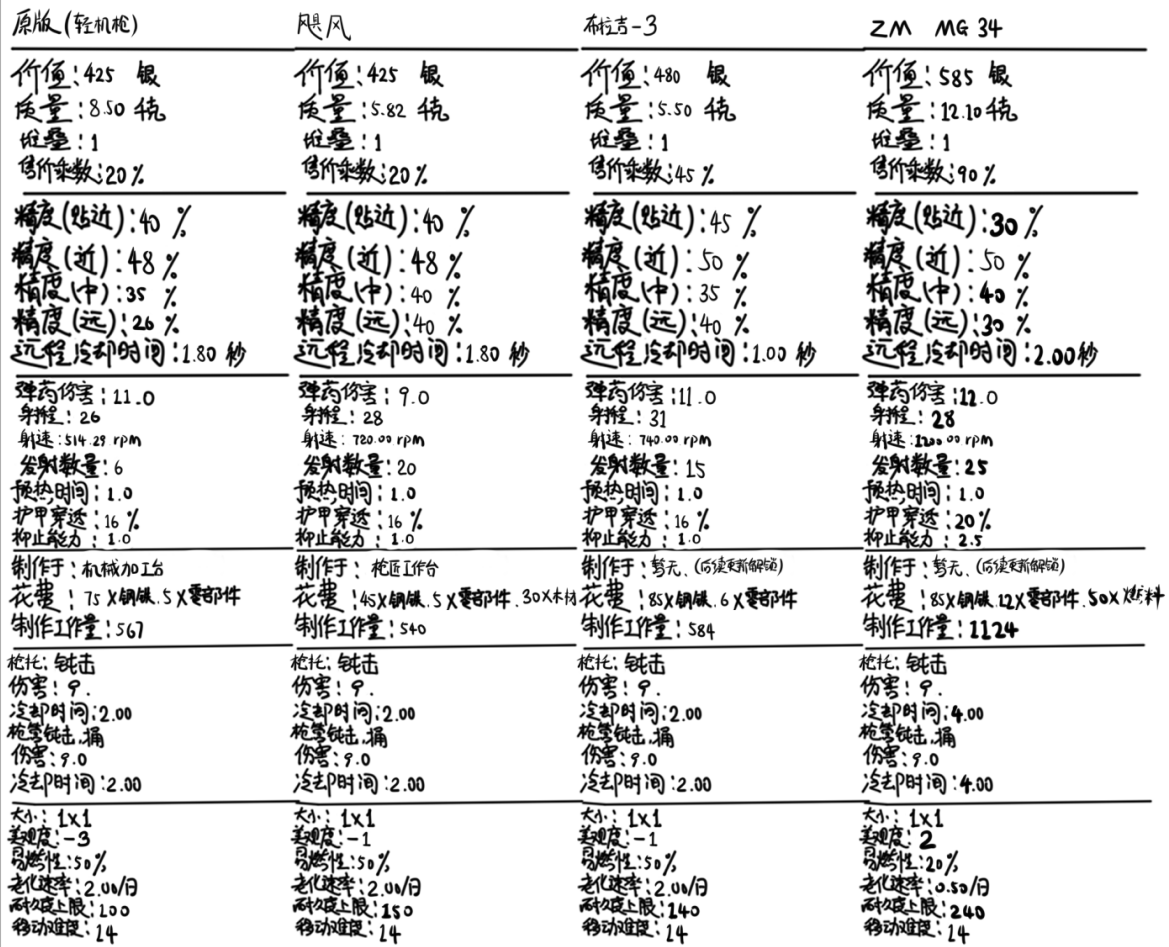 原版(轻机枪)
价值:425 银
质量:8.50 千克
堆叠:1
售价乘数:20%
精度(贴近):40 %
精度(近):48 %
精度(中):35 %
精度(远):26 %
远程冷却时间:1.80 秒
弹药伤害:11.0
射程:26
射速:514.29 rpm
发射数量:6
预热时间:1.0
护甲穿透:16%
抑止能力:1.0
制作于:机械加工台
花费:75X钢铁.5X零部件
制作工作量:567
枪托:钝击
伤害:9.
冷却时间:2.00
枪管钝击.捅
伤害:9.0
冷却时间:2.00
大小:1x1
美观度:-3
易燃性:50%
老化速率:2.00/日
耐久度上限:100
移动难度:14
飓风
价值:425 银
质量:5.82 千克
堆叠:1
售价乘数:20%
精度(贴近):40 %
精度(近):48 %
精度(中):40 %
精度(远):40 %
远程冷却时间:1.80 秒
弹药伤害:9.0
射程:28
射速:720.00 rpm
发射数量:20
预热时间:1.0
护甲穿透:16%
抑止能力:1.0
制作于:枪匠工作台
花费:45X钢铁.5X零部件.30X木材
制作工作量:540
枪托:钝击
伤害:9.
冷却时间:2.00
枪管钝击.捅
伤害:9.0
冷却时间:2.00
大小:1x1
美观度:-1
易燃性:50%
老化速率:2.00/日
耐久度上限:150
移动难度:14
布拉吉-3
价值:480 银
质量:5.50 千克
堆叠:1
售价乘数:45%
精度(贴近):45 %
精度(近):50 %
精度(中):35 %
精度(远):40 %
远程冷却时间:1.00 秒
弹药伤害:11.0
射程:31
射速:740.00 rpm
发射数量:15
预热时间:1.0
护甲穿透:16%
抑止能力:1.0
制作于:暂无、(后续更新解锁)
花费:85X钢铁.6X零部件
制作工作量:584
枪托:钝击
伤害:9.
冷却时间:2.00
枪管钝击.捅
伤害:9.0
冷却时间:2.00
大小:1x1
美观度:-1
易燃性:50%
老化速率:2.00/日
耐久度上限:140
移动难度:14
ZM MG 34
价值:585 银
质量:12.10千克
堆叠:1
售价乘数:90%
精度(贴近):30 %
精度(近):50 %
精度(中):40 %
精度(远):30 %
远程冷却时间:2.00秒
弹药伤害:12.0
射程:28
射速:1200.00 rpm
发射数量:25
预热时间:1.0
护甲穿透:20%
抑止能力:2.5
制作于:暂无、(后续更新解锁)
花费:85X钢铁.12X零部件.50X燃料
制作工作量:1124
枪托:钝击
伤害:9.
冷却时间:4.00
枪管钝击.捅
伤害:9.0
冷却时间:4.00
大小:1x1
美观度:2
易燃性:20%
老化速率:0.50/日
耐久度上限:240
移动难度:14